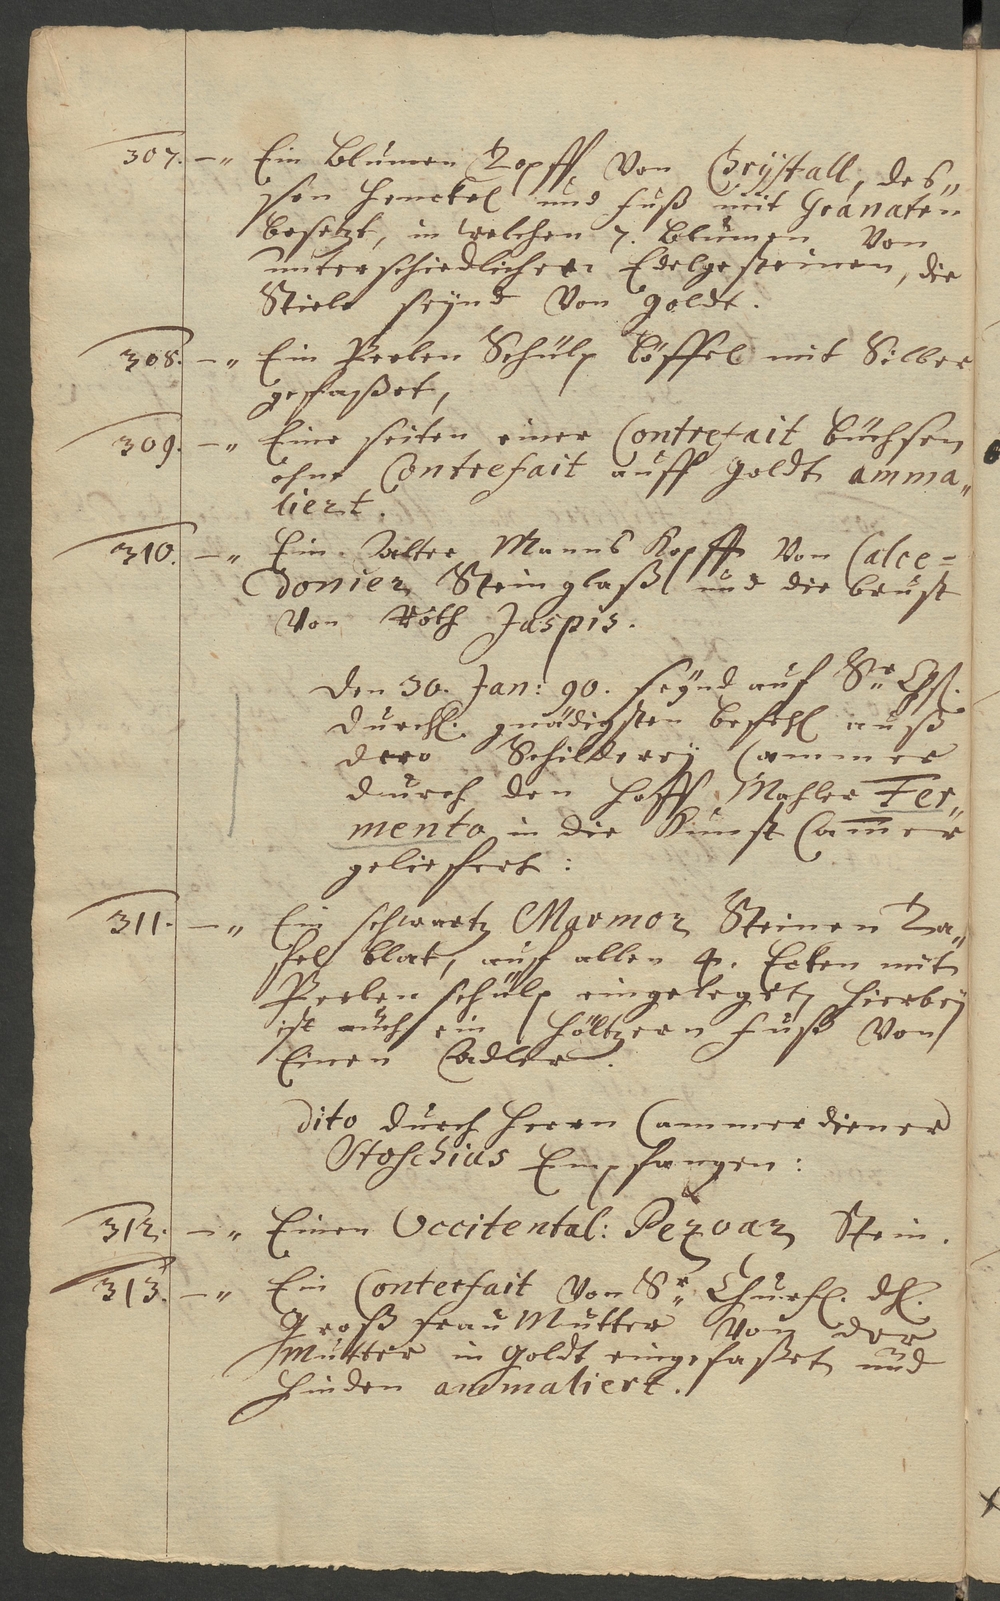 307. -„ Ein Blumen Topff von Crÿstall, des„
sen Henckel und Fuß mit Granaten
besetzt, in welchen 7. Blumen von
unterschiedlichen Edelgesteinen, die
Stiele seÿnd von Golde.
308. -„ Ein Perlen Schülp Löffel mit Silber
gefaßet,
309. -„ Eine seiten einer Contrefait büchsen
ohne Contrefait auff Goldt amma„
liert.
310. -„ Ein alter Manns Kopff von Calce=
donier Stein glaß und die brust
von roth Jaspis.
Den 30. Jan: 90. seÿnd auf Sr.
Durchl. gnädigsten befehl auß
dero Schildereÿ Cammer
durch den Hoff Mahler Fer„
mento in die Kunst Cam̅er
geliefert:
311. -„ Ein schwartz Marmor Steinen Ta„
fel blat, auf allen 4. Ecken mit
Perlen schülp eingeleget, hierbeÿ
ist auch ein höltzern Fuß von
Einen Adler.
Dito durch Herrn Cammerdiener
Stoschius Empfangen:
312. -„ Einen Occitental: Pezoar Stein.
313. -„ Ein Conterfait von Sr. Churfl. Dl.
Groß Frau Mutter von der
Mutter in Goldt eingefaßet und
hinden ammaliert.